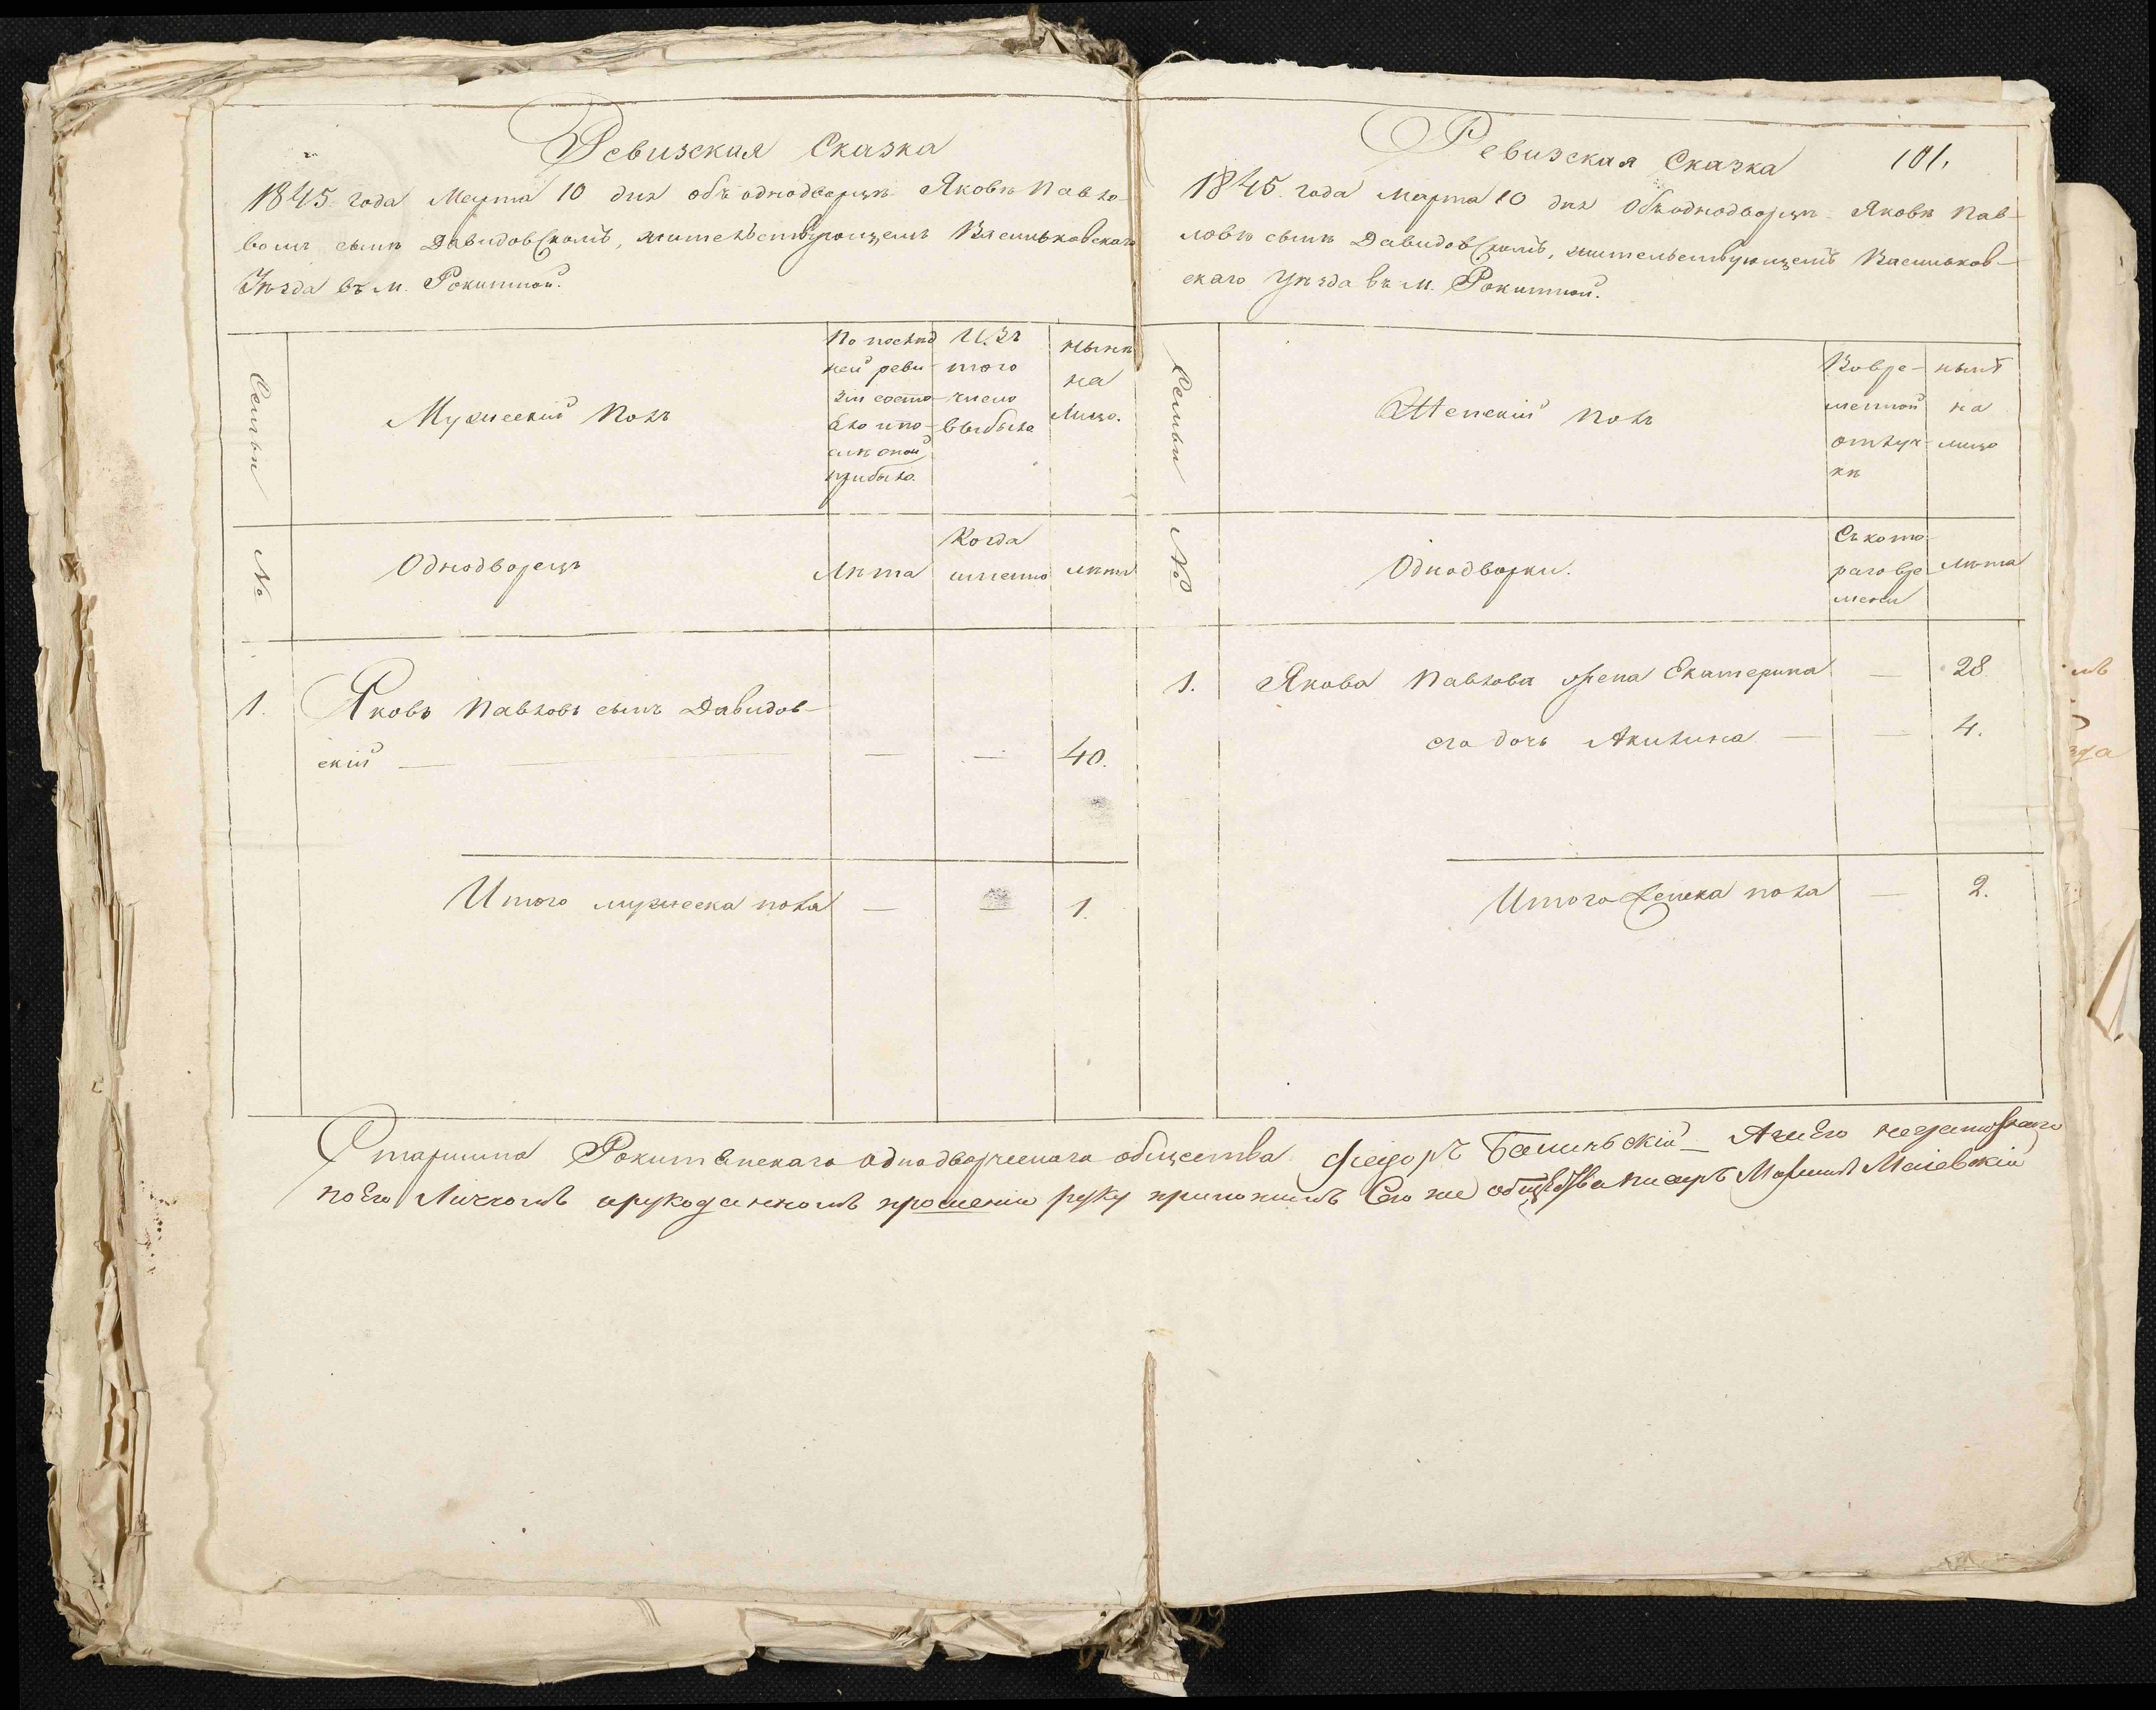 Ревизская Сказка
1845 года Марта 10 дня объ однодворцѣ Яковѣ Павло-
вомъ сынѣ Давидовскомъ, жительствующемъ Васильковскаго
Уѣзда въ м. Рокитной.
Семьи
Мужескій Полъ
По послѣд
ней реви-
зіи состо-
яло и по-
слѣ оной
прибыло.
Изъ
того
числа
выбыло
Нынѣ
на
Лицо.
№
Однодворецъ
Лѣта
Когда
именно
лѣта
1.
Яковъ Павловъ сынъ Давидов-
скій — — — 40.
Итого мужеска пола — — 1.
Ревизская Сказка 101.
1845 года Марта 10 дня Объ однодворцѣ Яковѣ Пав-
ловѣ сынѣ Давидовскомъ, жительствующемъ Васильков-
скаго Уѣзда въ м. Рокитной.
Семьи
Женскій Полъ
Во вре-
менной
отлуч-
кѣ
нынѣ
на
лицо
№
Однодворки.
Съ кото-
раго вре-
мени
Лѣта
1. Якова Павлова жена Екатерина — 28.
его дочь Акилина — — 4.
Итого Женска пола — 2.
Старшина Рокитянскаго однодворческаго общества Федоръ неграмотнаго
по Его Личномъ рукоданномъ прошенію руку приложилъ Его же общества писарь Маіевскій